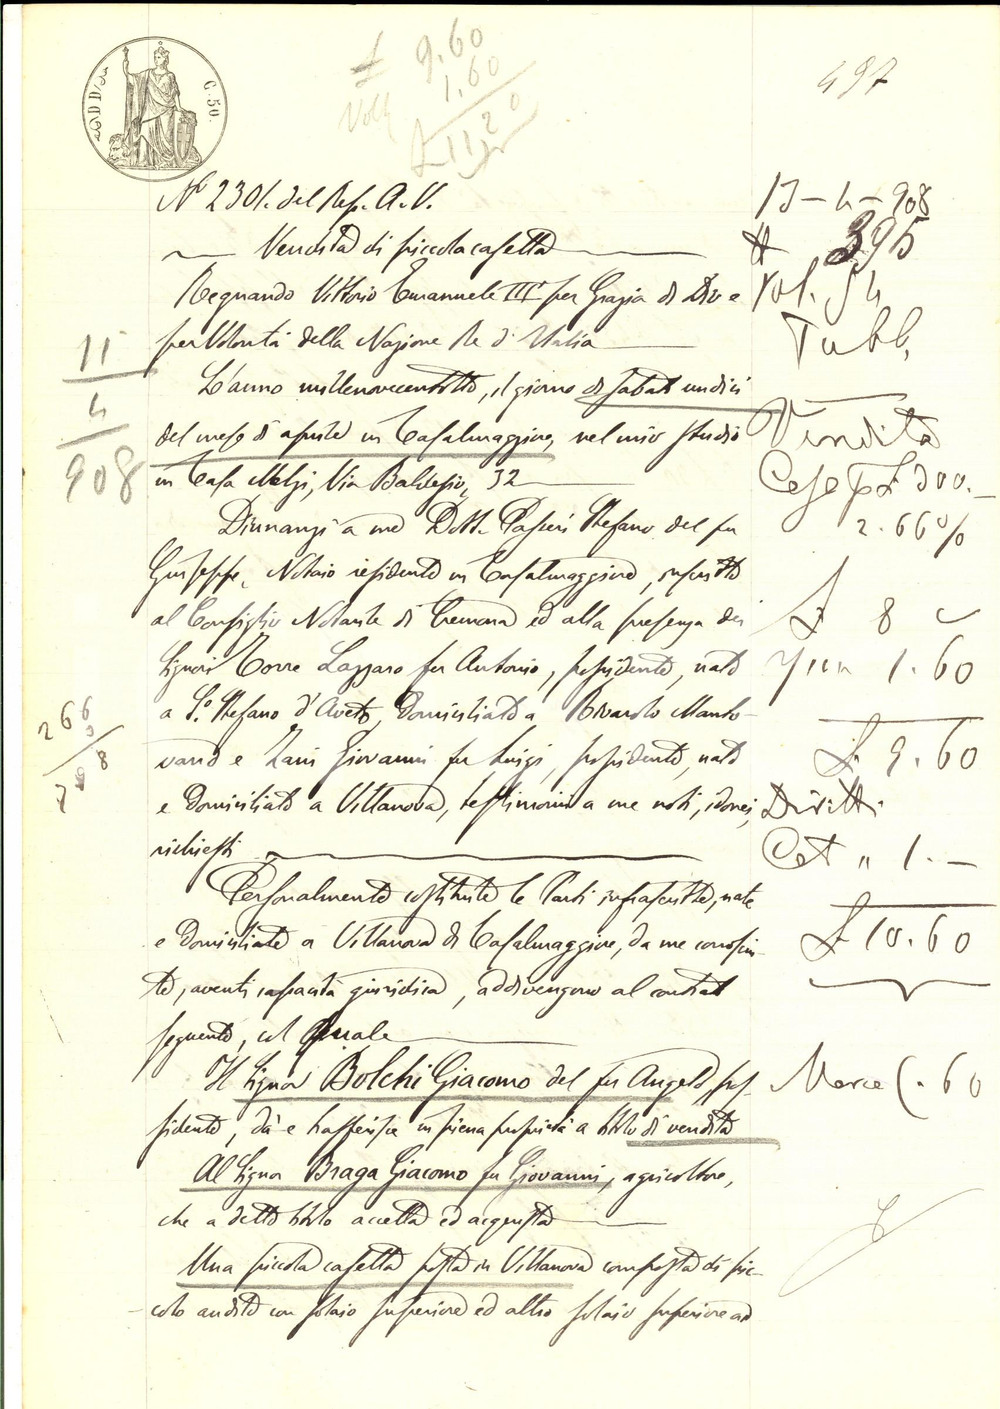 C. 50.
£ 9.60
1.60
£ 11.20
497
Nº 2301. del Rep. A. V.
Vendita di piccola casetta
Regnando Vittorio Emanuele IIIº per Grazia di Dio e
per Volontà della Nazione Re d'Italia
L'anno millenovecentotto, il giorno di sabato undici
del mese di aprile in Casalmaggiore, nel mio studio
in Casa Melzi, Via Baldesio, 32
Dinnanzi a me Dott. Pasieri Stefano del fu
Giuseppe, Notaio residente in Casalmaggiore, inscritto
al Consiglio Notarile di Cremona ed alla presenza dei
Signori Torre Lazzaro fu Antonio, possidente, nato
a S.º Stefano d'Aveto, domiciliato a Rivarolo Manto-
vano e Zani Giovanni fu Luigi, possidente, nato
e domiciliato a Villanova, testimoni a me noti, idonei,
richiesti
Personalmente costituite le Parti infrascritte, nate
e domiciliate a Villanova di Casalmaggiore, da me conosciu-
te, aventi capacità giuridica, addivengono al contratto
seguente, col quale
Il Signor Bolchi Giacomo del fu Angelo, pos-
sidente, dà e trasferisce in piena proprietà a titolo di vendita
Al Signor Braga Giacomo fu Giovanni, agricoltore,
che a detto titolo accetta ed acquista
Una piccola casetta posta in Villanova composta di pic-
colo andito con solaio superiore ed altro solaio superiore ad
11
4
908
266
3
7 98
13-4-908
# 395
Vol. 54
Pubb.
Vendita
Case p £ 300.-
2.66 %
£ 8
1.60
£ 9.60
Diritti
Cat " 1.-
£ 10.60
Merce 1.60